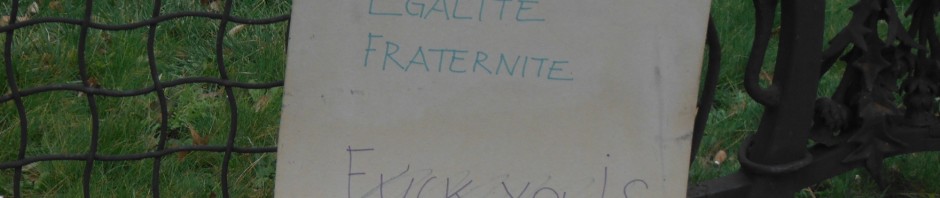 EGALITE
FRATERNITE
Fuck